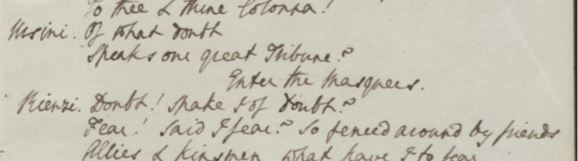 To thee & thine Colonna!
Ursini. Of what doubt
Speaks our great Tribune?
Enter the Masquers.
Rienzi. Doubt! Spake I of doubt?
Fear! Said I fear? So fenced around by friends
Allies & Kinsmen, what have I to fear